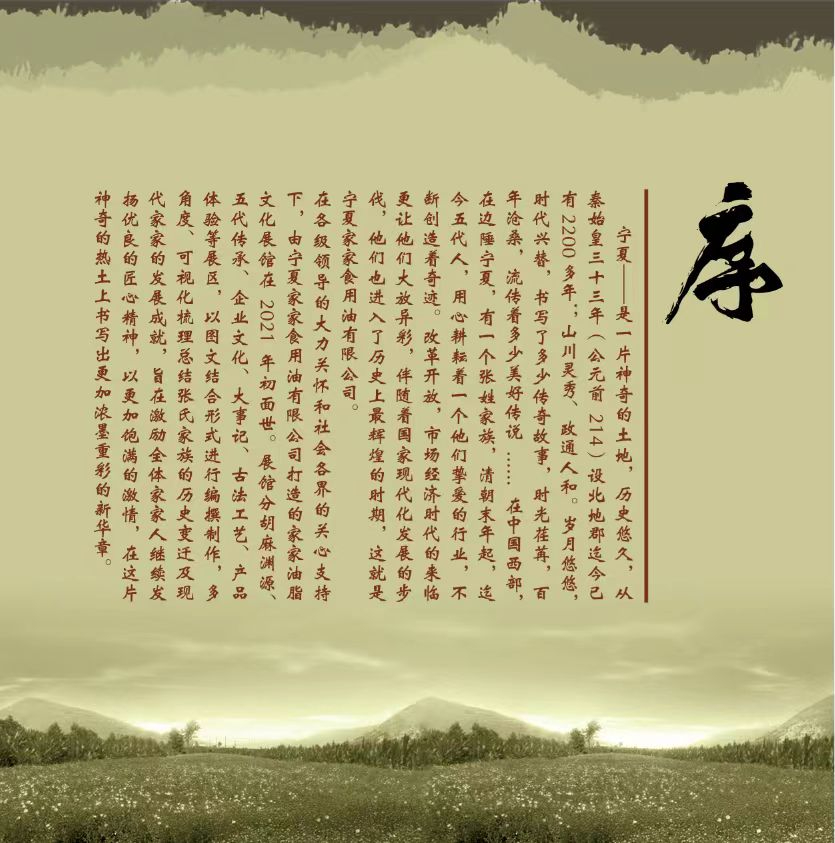 序
宁夏——是一片神奇的土地，历史悠久，从
秦始皇三十三年（公元前 214）设北地郡迄今已
有 2200 多年；山川灵秀、政通人和。岁月悠悠，
时代兴替，书写了多少传奇故事，时光荏苒，百
年沧桑，流传着多少美好传说 …… 在中国西部，
在边陲宁夏，有一个张姓家族，清朝末年起，迄
今五代人，用心耕耘着一个他们挚爱的行业，不
断创造着奇迹。改革开放，市场经济时代的来临
更让他们大放异彩，伴随着国家现代化发展的步
伐，他们也进入了历史上最辉煌的时期，这就是
宁夏家家食用油有限公司。
在各级领导的大力关怀和社会各界的关心支持
下，由宁夏家家食用油有限公司打造的家家油脂
文化展馆在 2021 年初面世。展馆分胡麻渊源、
五代传承、企业文化、大事记、古法工艺、产品
体验等展区，以图文结合形式进行编撰制作，多
角度、可视化梳理总结张氏家族的历史变迁及现
代家家的发展成就，旨在激励全体家家人继续发
扬优良的匠心精神，以更加饱满的激情，在这片
神奇的热土上书写出更加浓墨重彩的新华章。